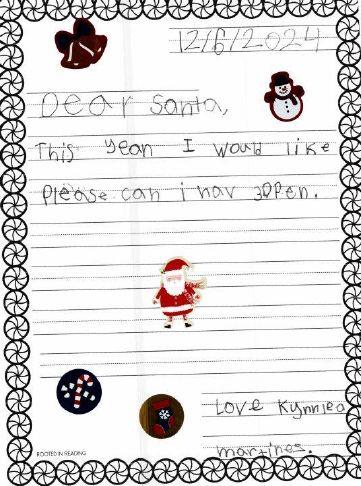 12/6/2024
Dear Santa,
This year I would like
Please can i hav 3Dpen.
Love Kynnlea
martines.
ROOTED IN READING